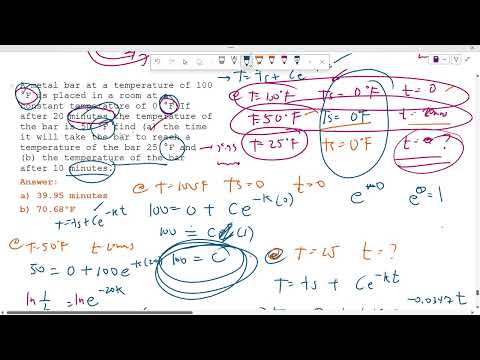 A metal bar at a temperature of 100
°F is placed in a room at a
constant temperature of 0 °F. If
after 20 minutes the temperature of
the bar is 50 °F find (a) the time
it will take the bar to reach a
temperature of the bar 25 °F and
(b) the temperature of the bar
after 10 minutes.
Answer:
a) 39.95 minutes
b) 70.68°F
T = Ts + Ce^-kt
→ T = Ts + Ce
@ T=100°F Ts = 0°F t = 0
T=50°F Ts = 0°F t = 20mins
T= 25°F Ts = 0°F t = ?
@ T = 100°F Ts = 0 t = 0
100 = 0 + Ce^-k(0)
e^0 = 1
100 = C(1)
100 = C
@ T=50°F t=20mins
50 = 0 + 100e^-k(20)
ln 1/2 = ln e^-20k
@ T = 25 t = ?
T = Ts + Ce^-kt
-0.0347t